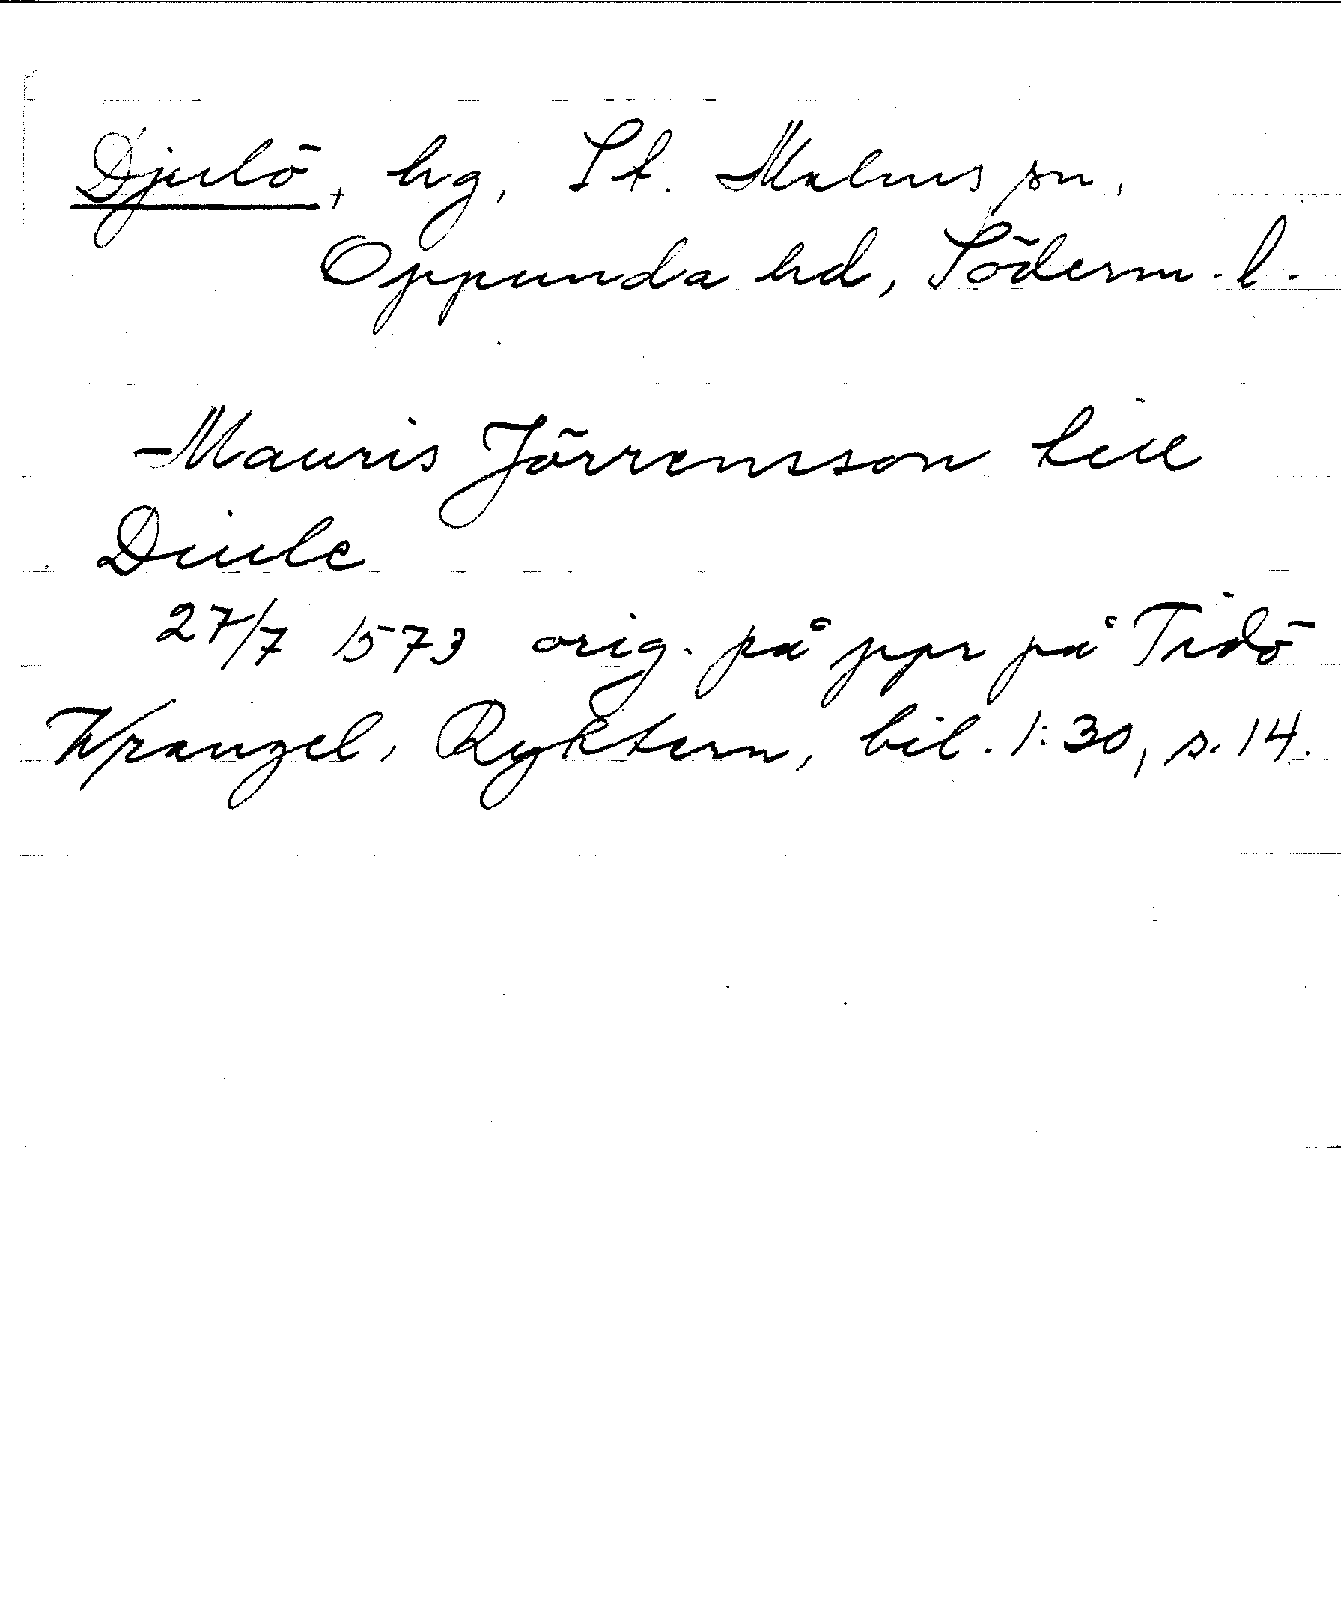 Djulö, hg, St. Malms sn,
Oppunda hd, Söderm. l.
Mauris Jörrensson till
Diule
27/7 1573 orig. på ppr på Tidö
Wrangel, Ryktern, bil. 1:30, s. 14.